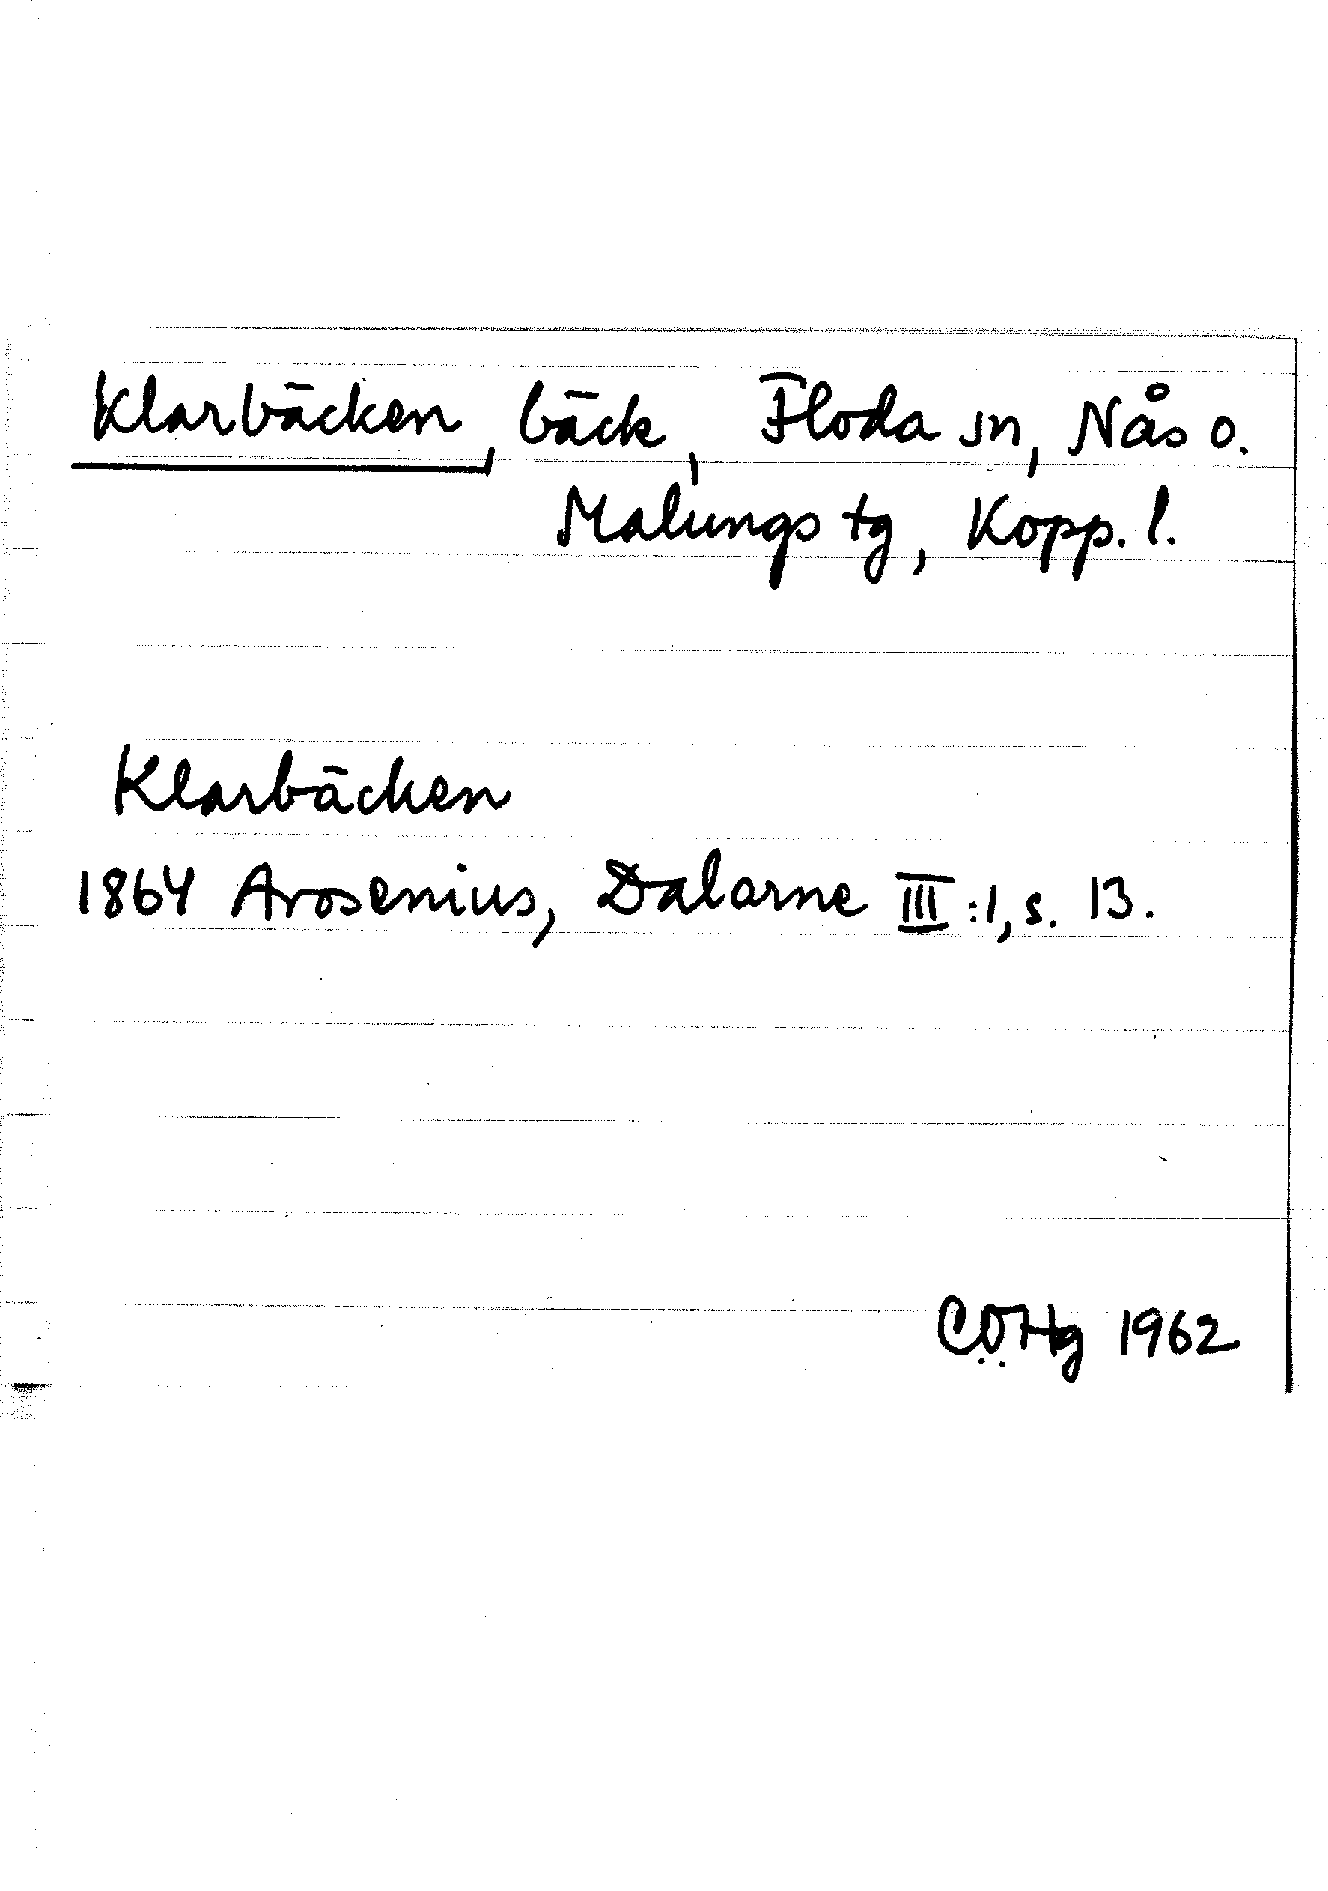 Klarbäcken, bäck, Floda sn, Nås o.
Malungs tg, Kopp. l.
Klarbäcken
1864 Arosenius, Dalarne III:1, s. 13.
CÖHg 1962